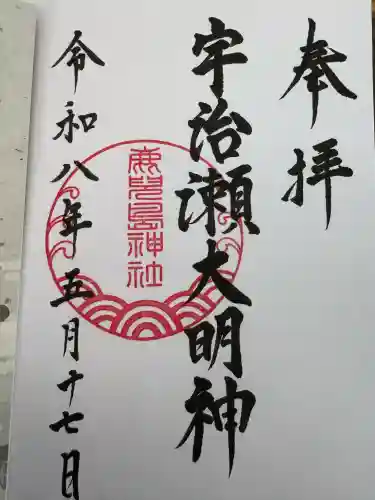 奉拝
宇治瀬大明神
鹿児島神社
令和八年五月十七日